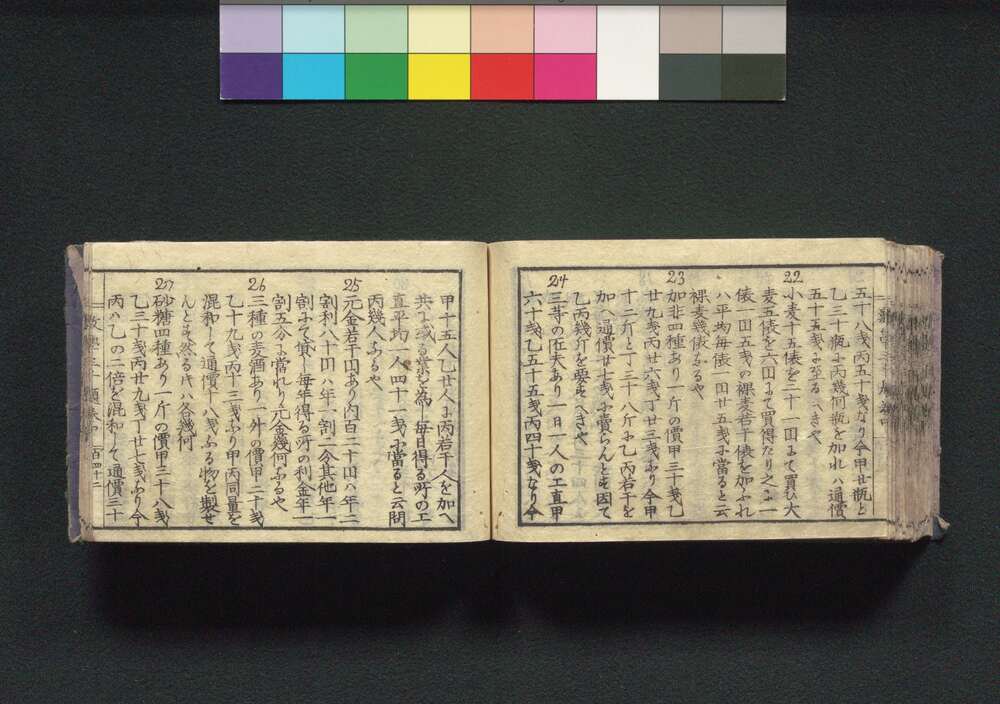 五十八戔丙五十戔なり今甲廿瓶と
乙三十瓶に丙幾何瓶を加れハ通價
五十五戔に至るへきや
22
小麦十五俵を二十一円にて買ひ大
麦五俵を六円にて買得たり之に一
俵一円五戔の裸麦若干俵を加ふれ
ハ平均毎俵一円廿五戔に當ると云
裸麦幾俵なるや
23
加非四種あり一斤の價甲三十戔乙
廿九戔丙廿六戔丁廿三戔なり今甲
十二斤と丁三十八斤に乙丙若干を
加へ通價廿七戔に賣らんとす因て
乙丙幾斤を要すへきや
24
三等の匠夫あり一日一人の工直甲
六十戔乙五十五戔丙四十戔なり今
甲十五人乙廿人に丙若干人を加へ
共に或る業を為し毎日得る所の工
直平均一人四十一戔に當ると云問
丙幾人なるや
25
元金若干円あり内百二十円ハ年二
割利八十円ハ年一割一分其他年一
割にて貸し毎年得る所の利金年一
割五分に當れり元金幾何なるや
26
三種の麦酒あり一舛の價甲二十戔
乙十九戔丙十三戔なり甲丙同量を
混和して通價十八戔なる物を製せ
んとす然る時ハ各幾何
27
砂糖四種あり一斤の價甲三十八戔
乙三十戔丙廿九戔丁廿七戔なり今
丙ハ乙の二倍を混和して通價三十
百四十二